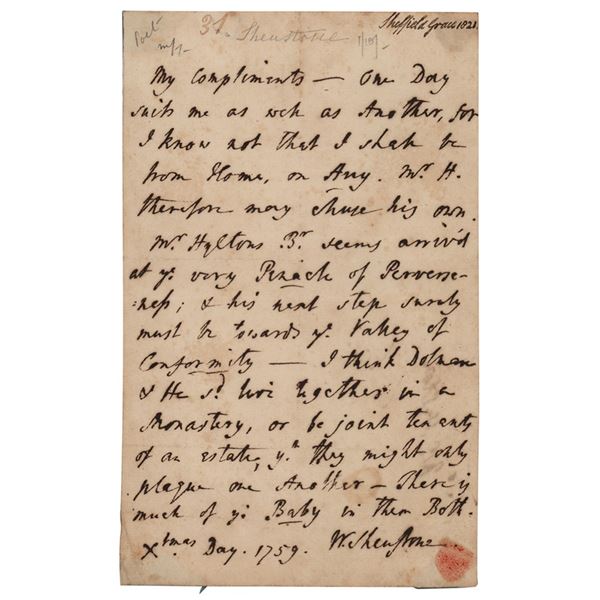 Poet
31. Shenstone
Sheffield Grace 1821.
My Compliments — One Day
suits me as well as Another, for
I know not that I shall be
from Home, on Any. Mr. H.
therefore may chuse his own.
Mr Hyltons Br. seems arriv'd
at ye. very Pinacle of Perverse-
:ness; & his next step surely
must be towards ye. Valley of
Conformity — I think Dolman
& He sd. live together in a
Monastery, or be joint tenants
of an estate, yt. they might only
plague one Another — There is
much of ye. Baby in them Both.
Xtmas Day. 1759. W. Shenstone